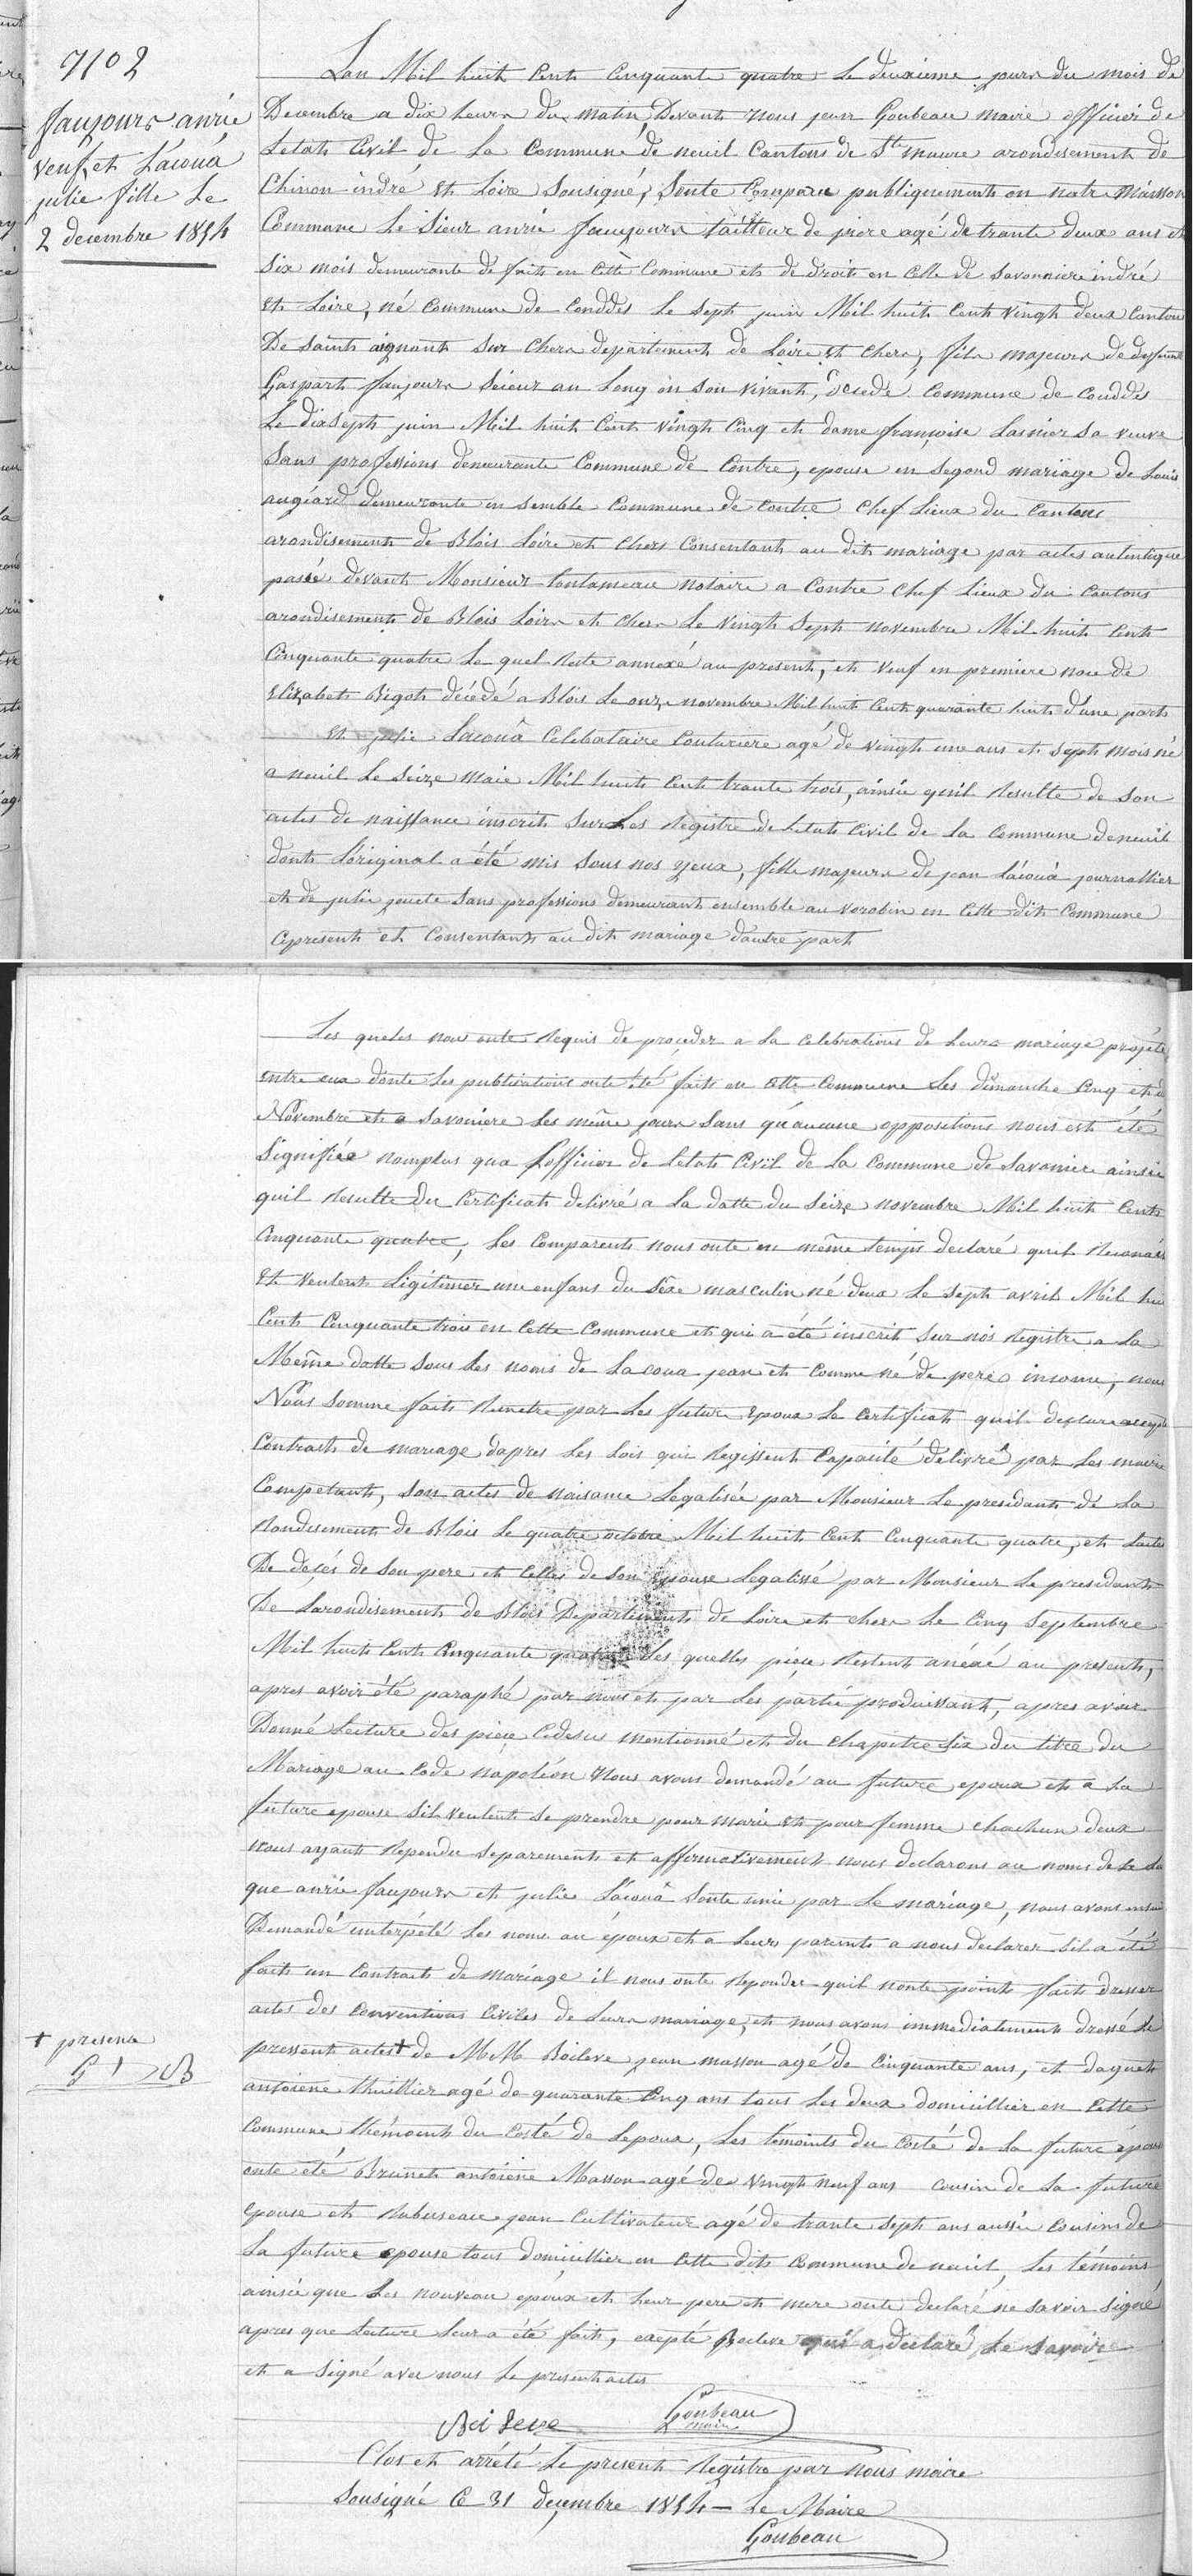 N° 2
faujours anrie
veuf, et Lácouà
julie fille Le
2 decembre 1854
Lan Mil huit Cent Cinquante quatre Le deuxième jours du mois de
Decembre a dix heurs du matin, Devant nous jean Goubeau maire officier de
Letat Civil de La Commune de neuil Cantons de Ste maure arondisement de
Chinon indré et Loire Sousigné, Sonte Comparu publiquement en notre Maison
Commune Le Sieur anrie faujours tailleur de piere agé de trante deux ans et
Six mois demeurante de fait en Cette Commune et de droit en Celle de Savonniere indré
et Loire, né Commune de Conddès Le Sept juin Mil huit Cent vingt deux Canton
De Saint aignant Sur Chers departement de Loire et Chers, fils majeurs de defunt
Gaspart faujours Scieur au Long en Son vivant, décedé Commune de Couddes
Le dix Sept juin Mil huit Cent vingt Cinq et dame françoise Lasnier Sa veuve
Sans professions demeurante Commune de Contre, epouse en Segond mariage de Louis
augéard demeurante en semble Commune de Contre Chef Lieux du Cantons
arondisement de Blois Loire et Chers Consentant au dit mariage par actes autentique
passé devant Monsieur notaire a Contre Chef Lieux du Cantons
arondisement de Blois Loirs et Chers Le vingt Sept novembre Mil huit Cent
Cinquante quatre Le quel Reste annexé au present, et veuf en premiere noce de
Elizabet Bigot décédé a Blois Le onze novembre Mil huit Cent quarante huit d'une part
Et julie Lacouâ Celebataire Couturiere agé de vingt une ans et Sept mois né
a neuil Le Seize Maie Mil huit Cent trante trois, ainsie quil Resulte de Son
actes de naissance inscrit Sur Les Registre de Letat Civil de La Commune de neuil
dont L'original a été mis Sous nos yeux, fille majeurs de jean Lácouà journallier
et de julie jouete Sans professions demeurant ensemble au vorobin en Cette dit Commune
Cepresent et Consentant au dit mariage dautre part
Les queles nous onte Requis de proceder a La Celebrations de Leurs mariage projété
entre eux donte Les publications onte été fait en Cette Commune Les dimanche Cinq et
Novembre et a Savoniere Les même jours Sans qu'aucune oppositions nous est été
Signifiée nomplus qua Lofficier de Letat Civil de La Commune de Savonier ainsie
quil Resulte du Certificat delivré a La datte du Seize novembre Mil huit Cent
Cinquante quatre, Les Comparent nous onte en même temps declaré quil
Et veulent Légitimer une enfans du Sêxe masculin né deux Le Sept avril Mil hui
Cent Cinquante trois en Cette Commune et qui a été inscrit Sur nos Registre a La
Même datte Sous Les noms de Lacoua jean et Comme né de pere inconu, nous
Nous Somme fait Remetre par Les future Epoux Le Certificat quil declare
Contract de mariage dapres Les Lois qui Regissent Capacité délivré par Les maire
Competant, Son actes de naisance Legalisée par Monsieur Le presidant de La
Rondisement de Blois Le quatre octobre Mil huit Cent Cinquante quatre, et Lactes
De decés de Son pere et Celles de Son epouse Legalissé par Monsieur Le presidant
De Larondisement de Blois Departement de Loire et Chers Le Cinq Septembre
Mil huit Cent Cinquante quatre Les quelles pièce Restent anéxé au present,
apres avoir été paraphé par nous et par Les partie produissant, apres avoir
Donné Lecture des pièce Cidesus mentionné et du Chapitre Six du titre du
Mariage au Code napoléon Nous avons demandé au future epoux et a La
future epouse Sil veulent Se prendre pour marie et pour femme Chachun deux
nous ayant Rependu Separement et affirmativement nous declarons au noms de La
que anrie faujours et julie Lácouà Sonte unie par Le mariage, nous avons
Demandé unterpélé Les nome au époux et a Leurs parents a nous declarer Sil a été
fait un Contract de mariage il nous onte Reponder quil nonte point fait dresser
actes des Conventions Civiles de Leurs mariage, et nous avons immediatement dressé Le
pressent actes + de MM Boileve jean masson agé de Cinquante ans, et daguet
antoiene thuillier agé de quarante Cinq ans tous Les deux domicillier en Cette
Commune thémoents du Costé de Lepoux, Les témoints du Costé de La future épouse
onte été Brunet antoiene Masson agé de vingt neuf ans Cousin de La future
Epouse et Rabuseau jean Cultivateur agé de trante Sept ans aussi Cousins de
La future epouse tous domicillier en Cette dite Commune de neuil, Les témoins
ainsie que Les nouveau epoux et Leur pere et mere onte declaré ne Savoir Signé
apres que Lecture Leur a été fait, exepté Boileve qui a declaré Le Savoire
et a Signé avec nous Le present actes
+ presence
G J B
Boileve Goubeau
maire
Clos et arrété Le present Régistre par nous maire
Sousigné Ce 31 decembre 1854 — Le Maire
Goubeau